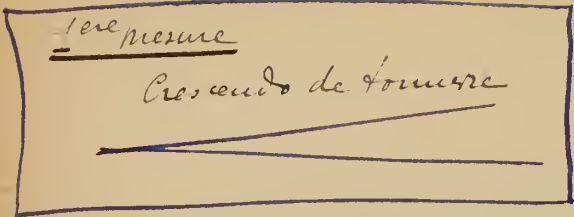 1ere mesure
Crescendo de tonnerre